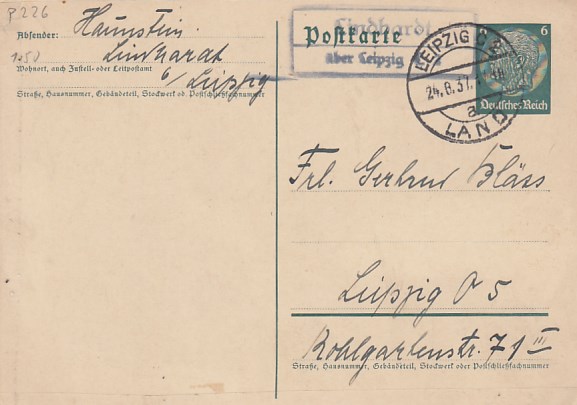 P226
1.50
Absender: Haunstein
Lindhardt
b/Leipzig
Wohnort, auch Zustell- oder Leitpostamt
Straße, Hausnummer, Gebäudeteil, Stockwerk od. Postschließfachnummer
Postkarte
Lindhardt
über Leipzig
LEIPZIG C 2
24.8.37.
a
LAND
6
Deutsches Reich
Frl. Gertrud Bläss
Leipzig O 5
Kohlgartenstr. 71 III
Straße, Hausnummer, Gebäudeteil, Stockwerk oder Postschließfachnummer